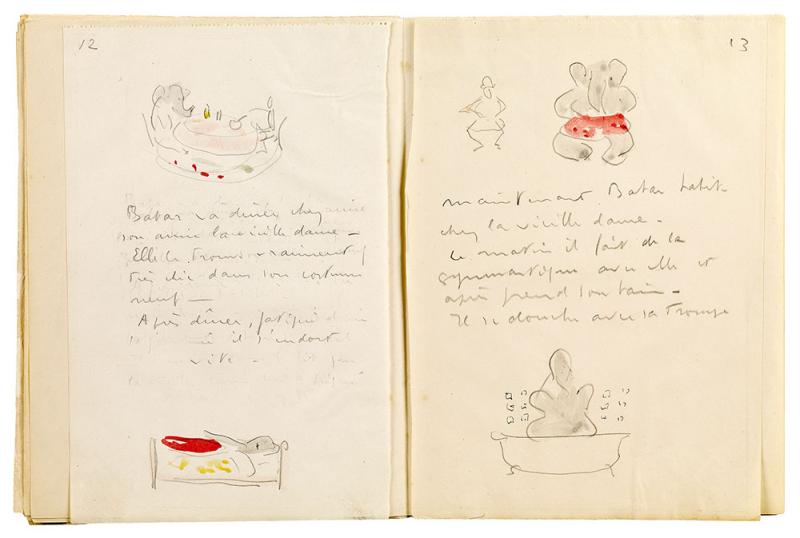 12
Babar va dîner chez
son amie la vieille dame –
Elle le trouve vraiment
très chic dans son costume
neuf –
Après dîner, fatigué
il s'endort
vite –
13
maintenant Babar habite
chez la vieille dame –
Le matin il fait de la
gymnastique avec elle et
après prend son bain –
Il se douche avec sa trompe